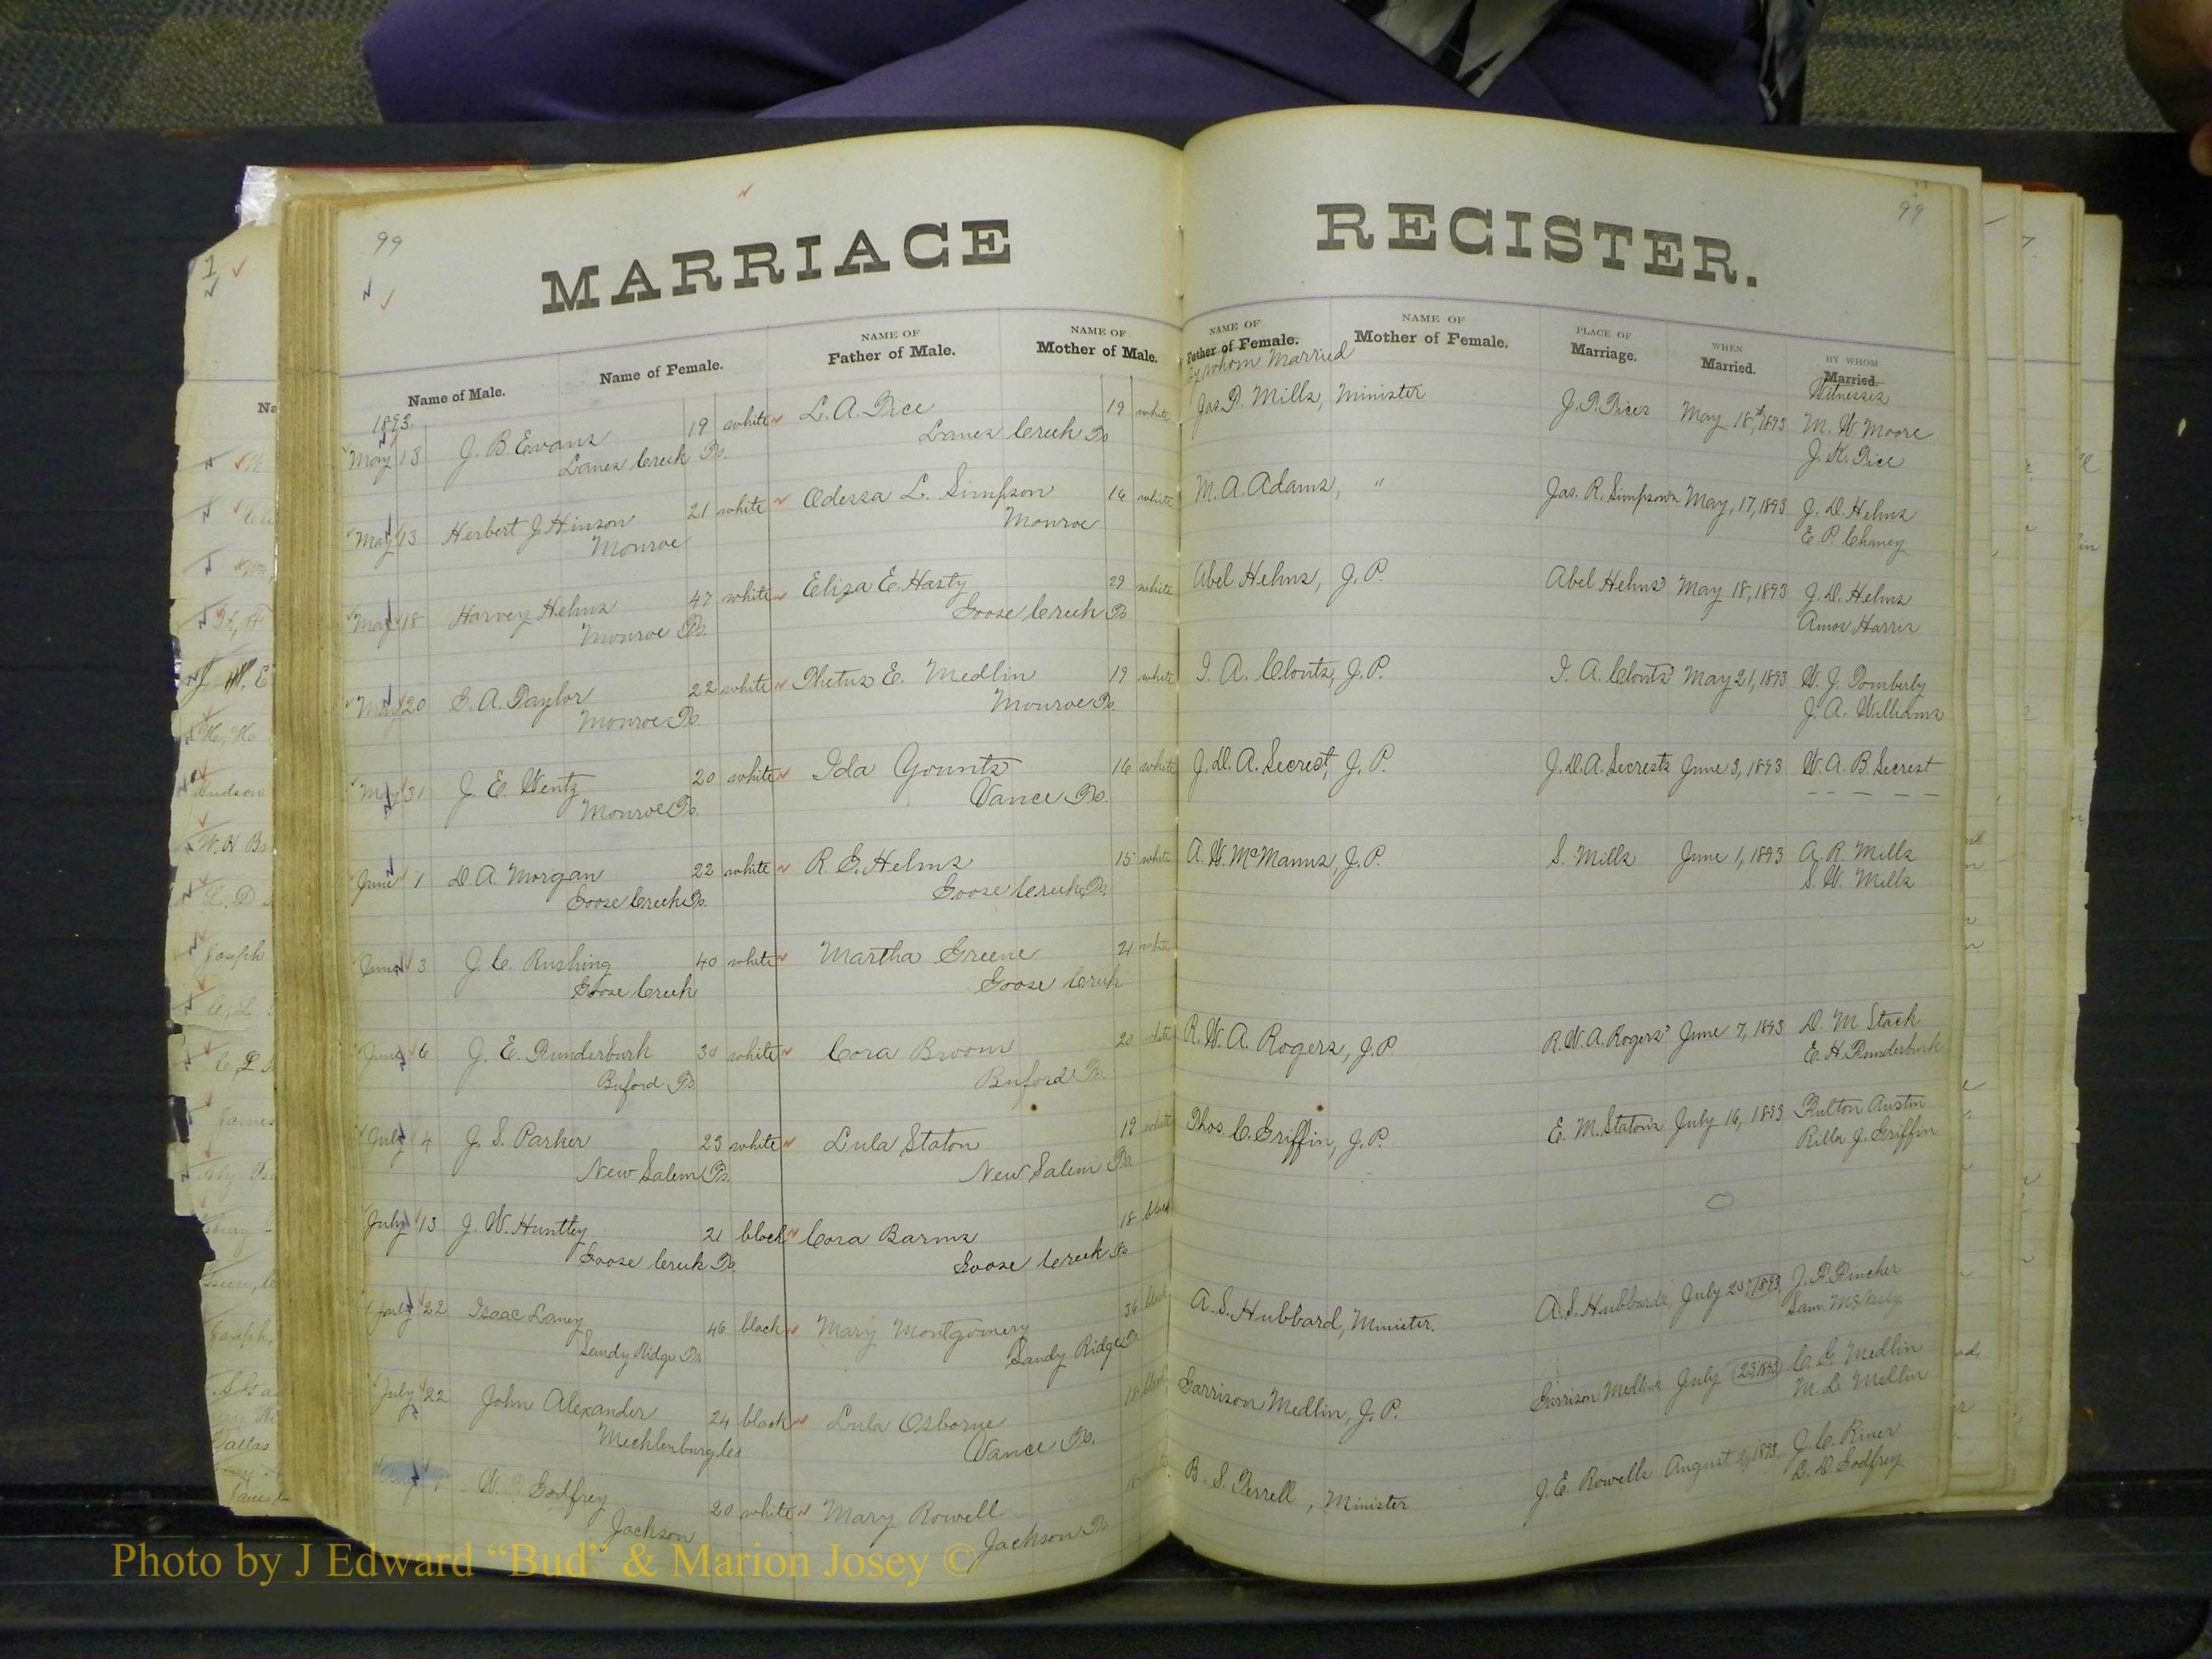 99
99
MARRIAGE REGISTER.
Name of Male.
Name of Female.
NAME OF
Father of Male.
NAME OF
Mother of Male.
NAME OF
Father of Female.
By whom Married
NAME OF
Mother of Female.
PLACE OF
Marriage.
WHEN
Married.
BY WHOM
Married.
Witnesses
1893.
May 13 J. B. Evans 19 white L. A. Price 19 white Jas. P. Mills, Minister J. P. Price's May 18th, 1893 M. W. Moore
Lanes Creek Ts. Lanes Creek Ts J. K. Price
May 13 Herbert J. Hinson 21 white Odessa L. Simpson 16 white M. A. Adams, " Jas. R. Simpson's May, 17, 1893 J. D. Helms
Monroe Monroe E. P. Chaney
May 18 Harvey Helms 47 white Eliza E. Hasty 29 white Abel Helms, J. P. Abel Helms' May 18, 1893 J. D. Helms
Monroe Ts. Goose Creek Ts Amos Harris
May 20 E. A. Taylor 22 white Thetus E. Medlin 19 white I. A. Clontz, J. P. I. A. Clontz' May 21, 1893 W. J. Pomberly
Monroe Ts. Monroe Ts. J. A. Williams
May 31 J. E. Wentz 20 white Ida Yountz 16 white J. D. A. Secrest, J. P. J. D. A. Secrests June 3, 1893 W. A. B. Secrest
Monroe Ts. Vance Ts. - - - - -
June 1 D. A. Morgan 22 white R. E. Helms 15 white A. W. McManus, J. P. S. Mills June 1, 1893 A. R. Mills
Goose Creek Ts. Goose Creek Ts. S. W. Mills
June 3 J. C. Rushing 40 white Martha Greene 21 white
Goose Creek Goose Creek
June 6 J. E. Funderburk 30 white Cora Broom 20 white R. W. A. Rogers, J. P. R. W. A. Rogers' June 7, 1893 D. M. Stack
Buford Ts. Buford Ts. E. H. Funderburk
July 4 J. S. Parker 23 white Lula Staton 19 white Thos. C. Griffin, J. P. E. M. Staton's July 16, 1893 Fulton Austin
New Salem Ts. New Salem Ts. Rilla J. Griffin
July 13 J. W. Huntley 21 black Cora Barns 18 black
Goose Creek Ts. Goose Creek Ts
July 22 Isaac Laney 46 black Mary Montgomery 36 black A. S. Hubbard, Minister. A. S. Hubbards, July 23, 1893 J. P. Pincher
Sandy Ridge Ts Sandy Ridge Ts Sam.
July 22 John Alexander 24 black Lula Osborne 18 black Garrison Medlin, J. P. Garrison Medlins July 23, 1893 C. E. Medlin
Mecklenburg Co Vance Ts. M. L. Medlin
Aug W. Godfrey 20 white Mary Rowell 18 white B. S. Ferrell, Minister J. E. Rowells August 1893 J. C. Riner
Jackson Jackson Ts L. D. Godfrey
Photo by J Edward “Bud” & Marion Josey ©